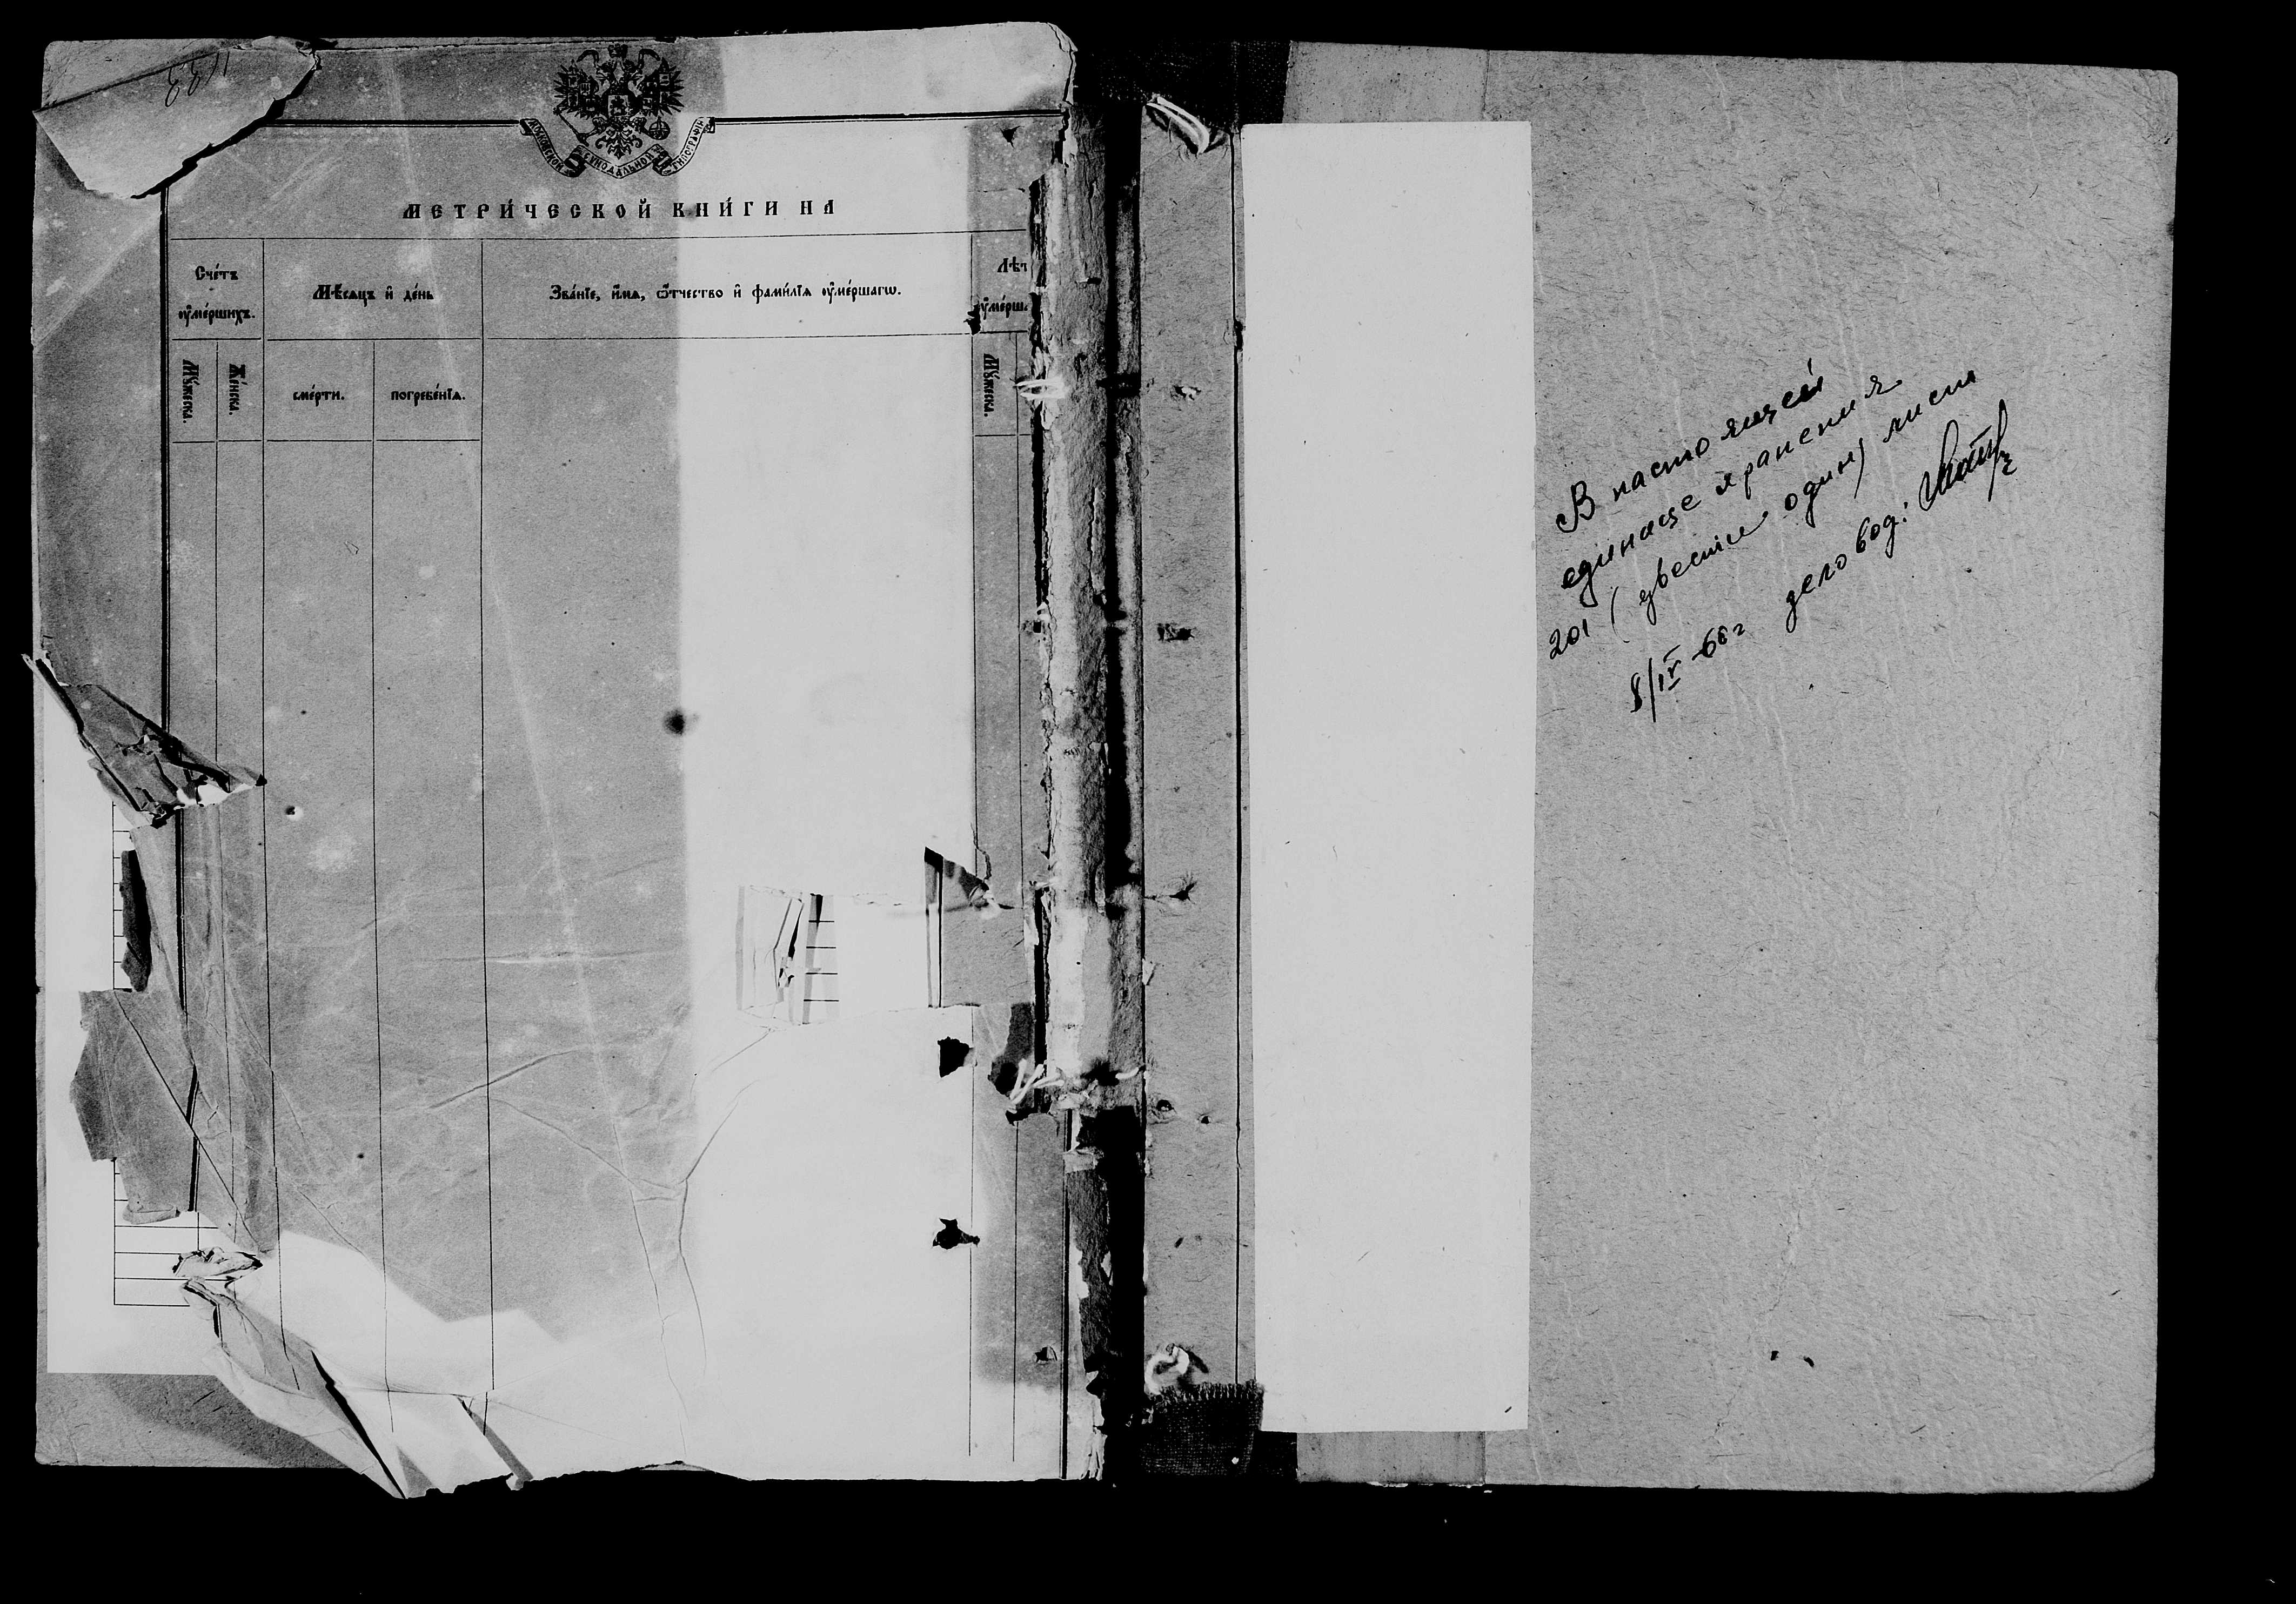 МОСКОВСКОЙ СѴНОДАЛЬНОЙ ТИПОГРАФІИ
МЕТРИ́ЧЕСКОЙ КНИ́ГИ НА
Сче́тъ
ᲂу҆ме́ршихъ.
Мѣ́сѧцъ и҆ де́нь
Зва́нїе, и҆́мѧ, ѻ҆́тчество и҆ фами́лїѧ ᲂу҆ме́ршагѡ.
Лѣт
ᲂу҆ме́рша
Мꙋ́жеска.
Же́нска.
сме́рти.
погребе́нїѧ.
Мꙋ́жеска.
В настоящей
единице хранения
201 (двести один) лист
8/IV-66г деловод: